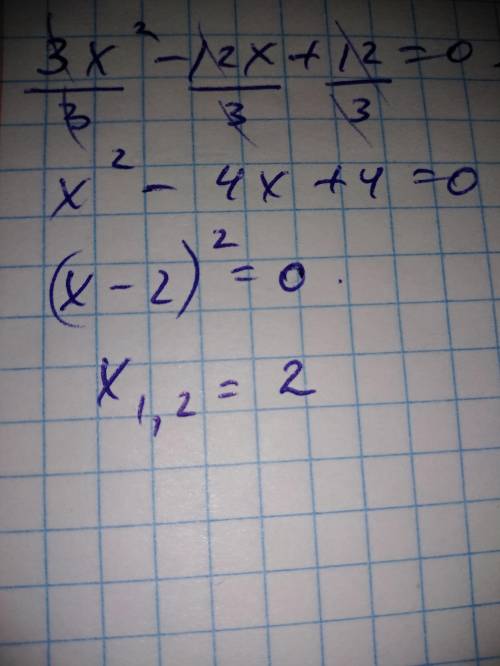 3x² - 12x + 12 = 0
3 3 3
x² - 4x + 4 = 0
(x - 2)² = 0.
x₁,₂ = 2